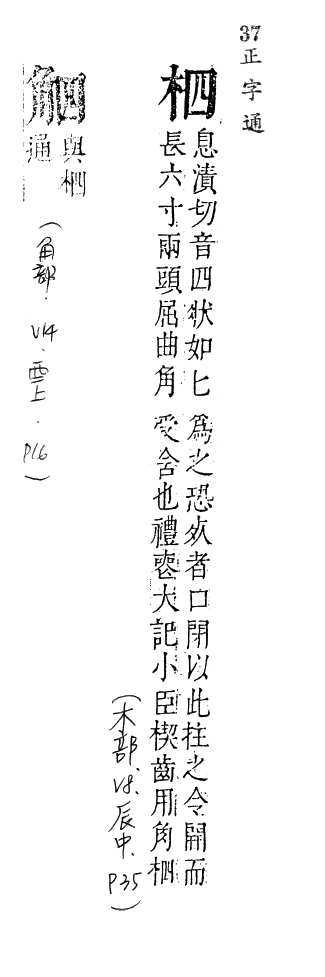 37正字通
柶
息漬切音四狀如匕
長六寸兩頭屈曲角
爲之恐死者口閉以此拄之令開而
受含也禮喪大記小臣楔齒用角柶
(木部、V8、辰中、P35)
與柶
通
(角部.V14.酉上.P16)